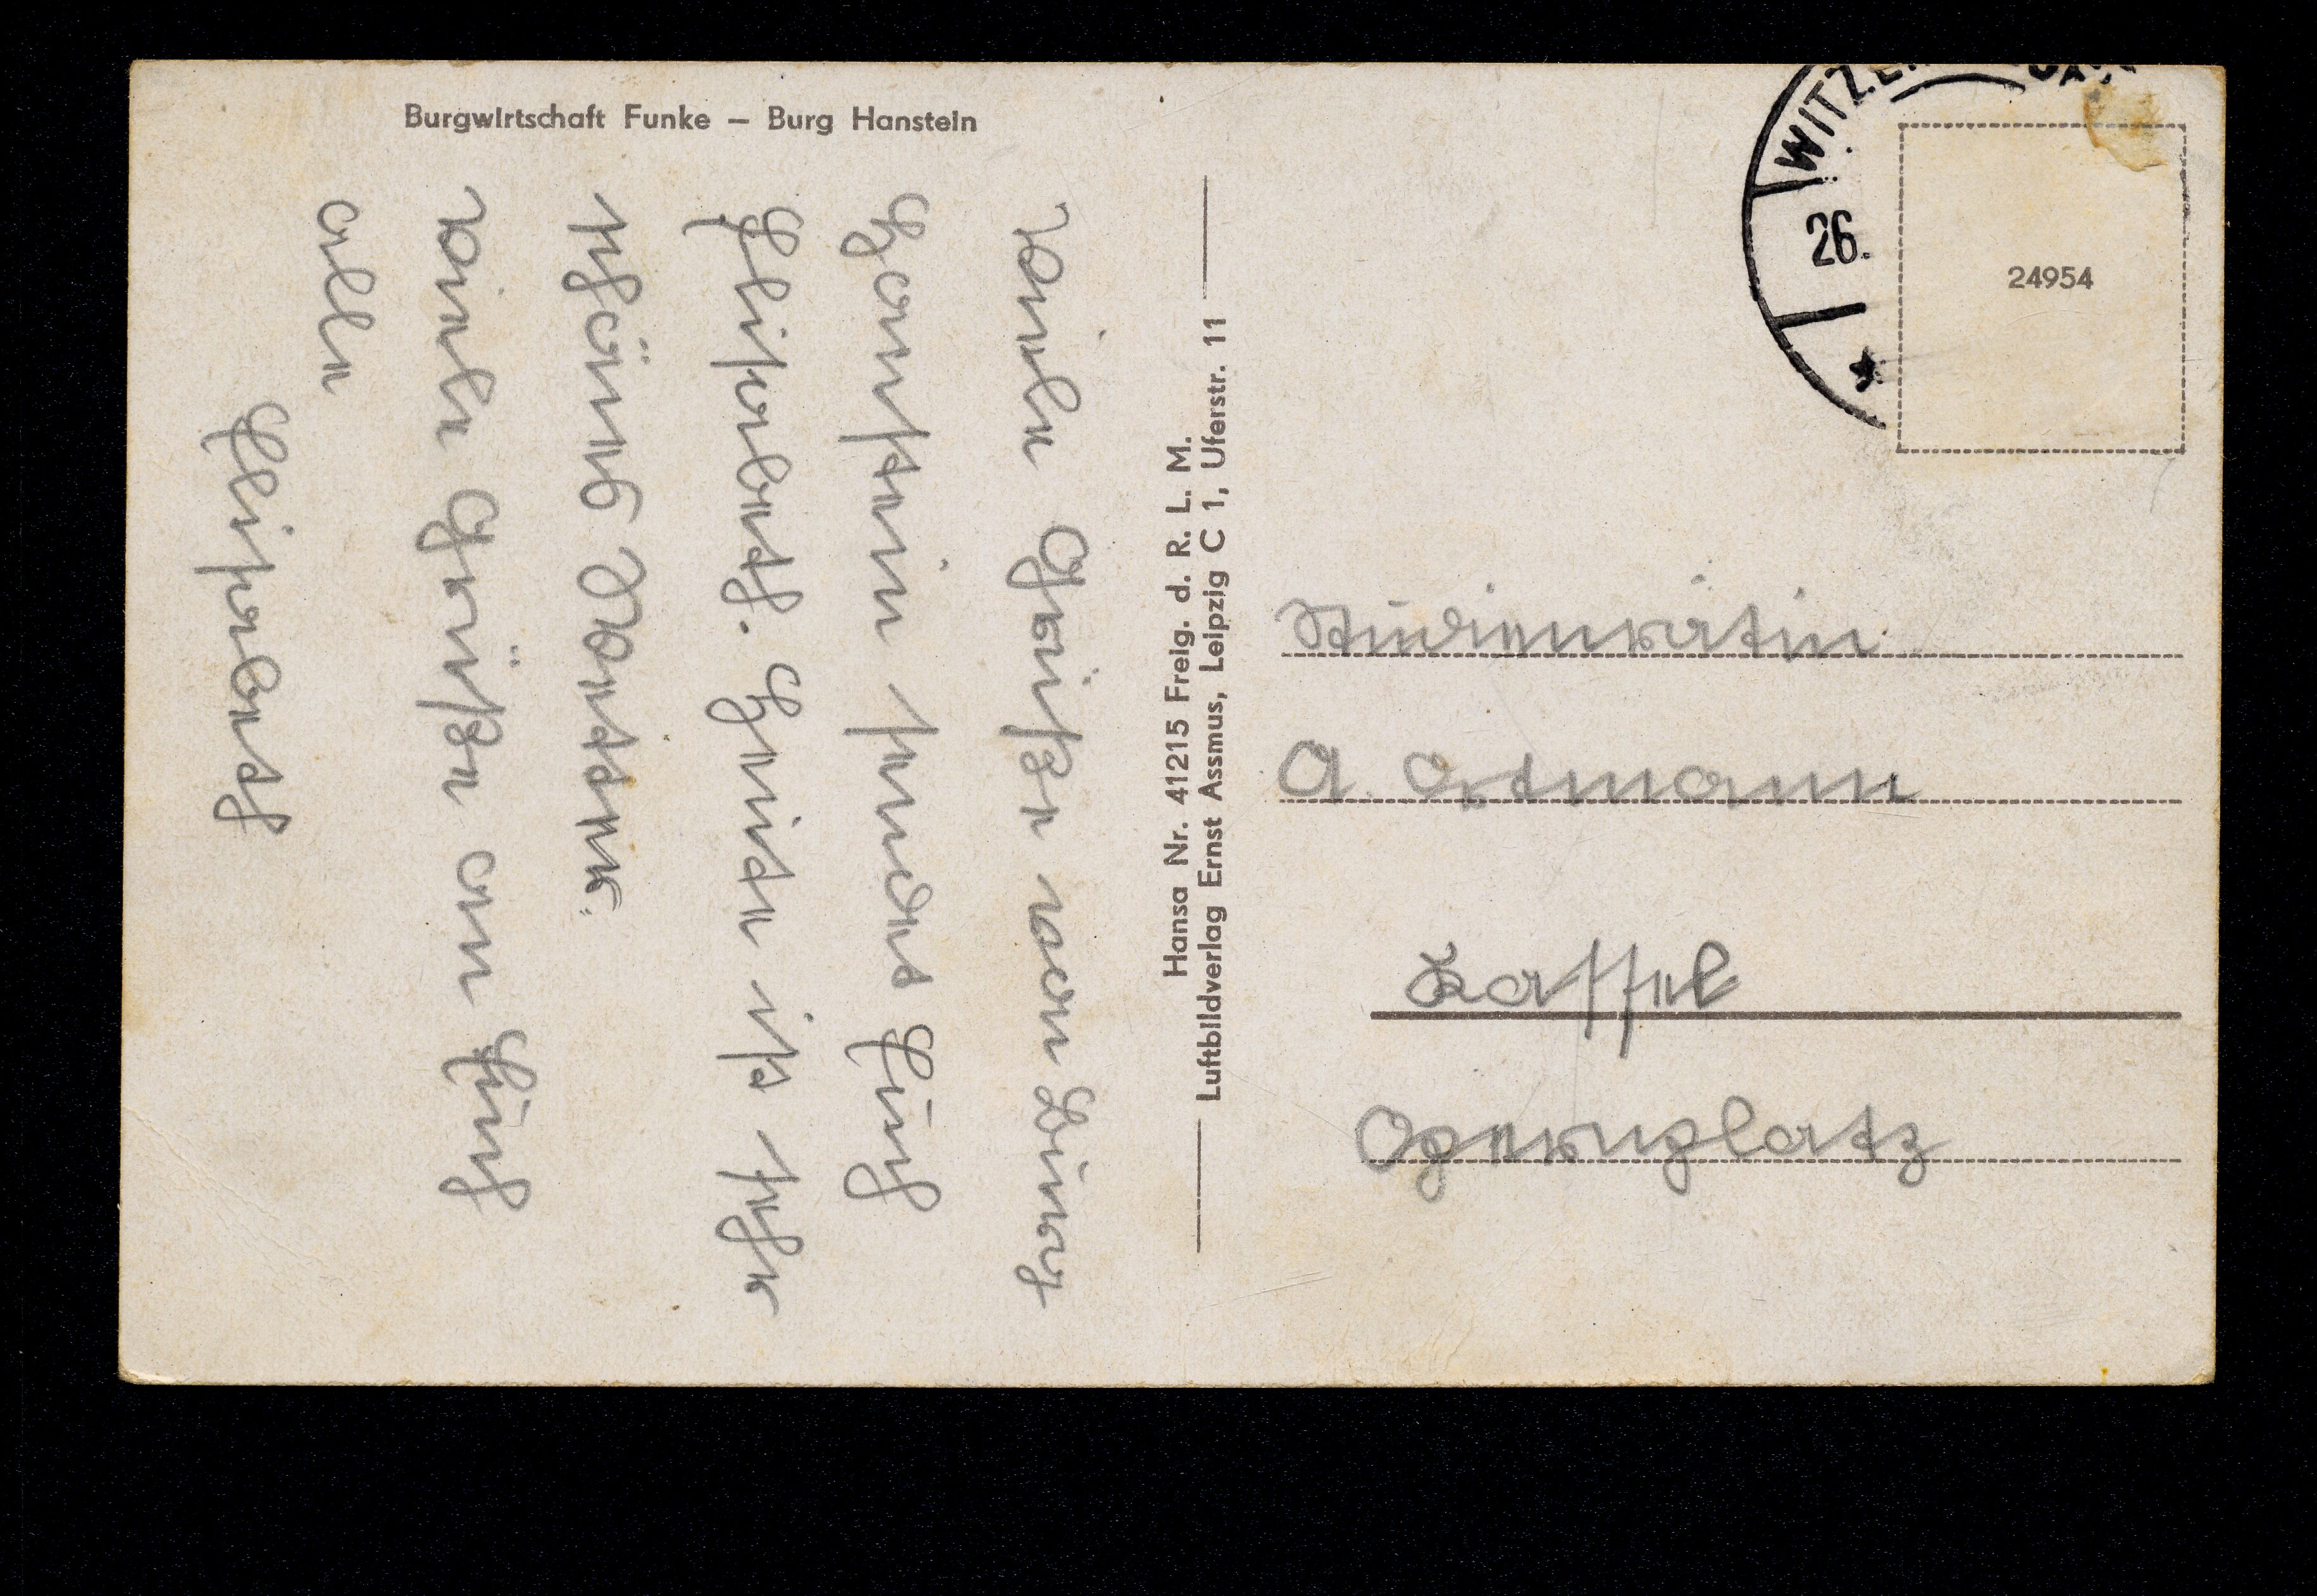 Burgwirtschaft Funke – Burg Hanstein
Viele Grüße von Burg
Hanstein sendet Euch
Elisabeth. Heute ist sehr
schönes Wetter.
Viele Grüße an Euch
alle
Elisabeth
Hansa Nr. 41215 Freig. d. R. L. M.
Luftbildverlag Ernst Assmus, Leipzig C 1, Uferstr. 11
26.
24954
Studienrätin
A. Ortmann
Kassel
Opernplatz